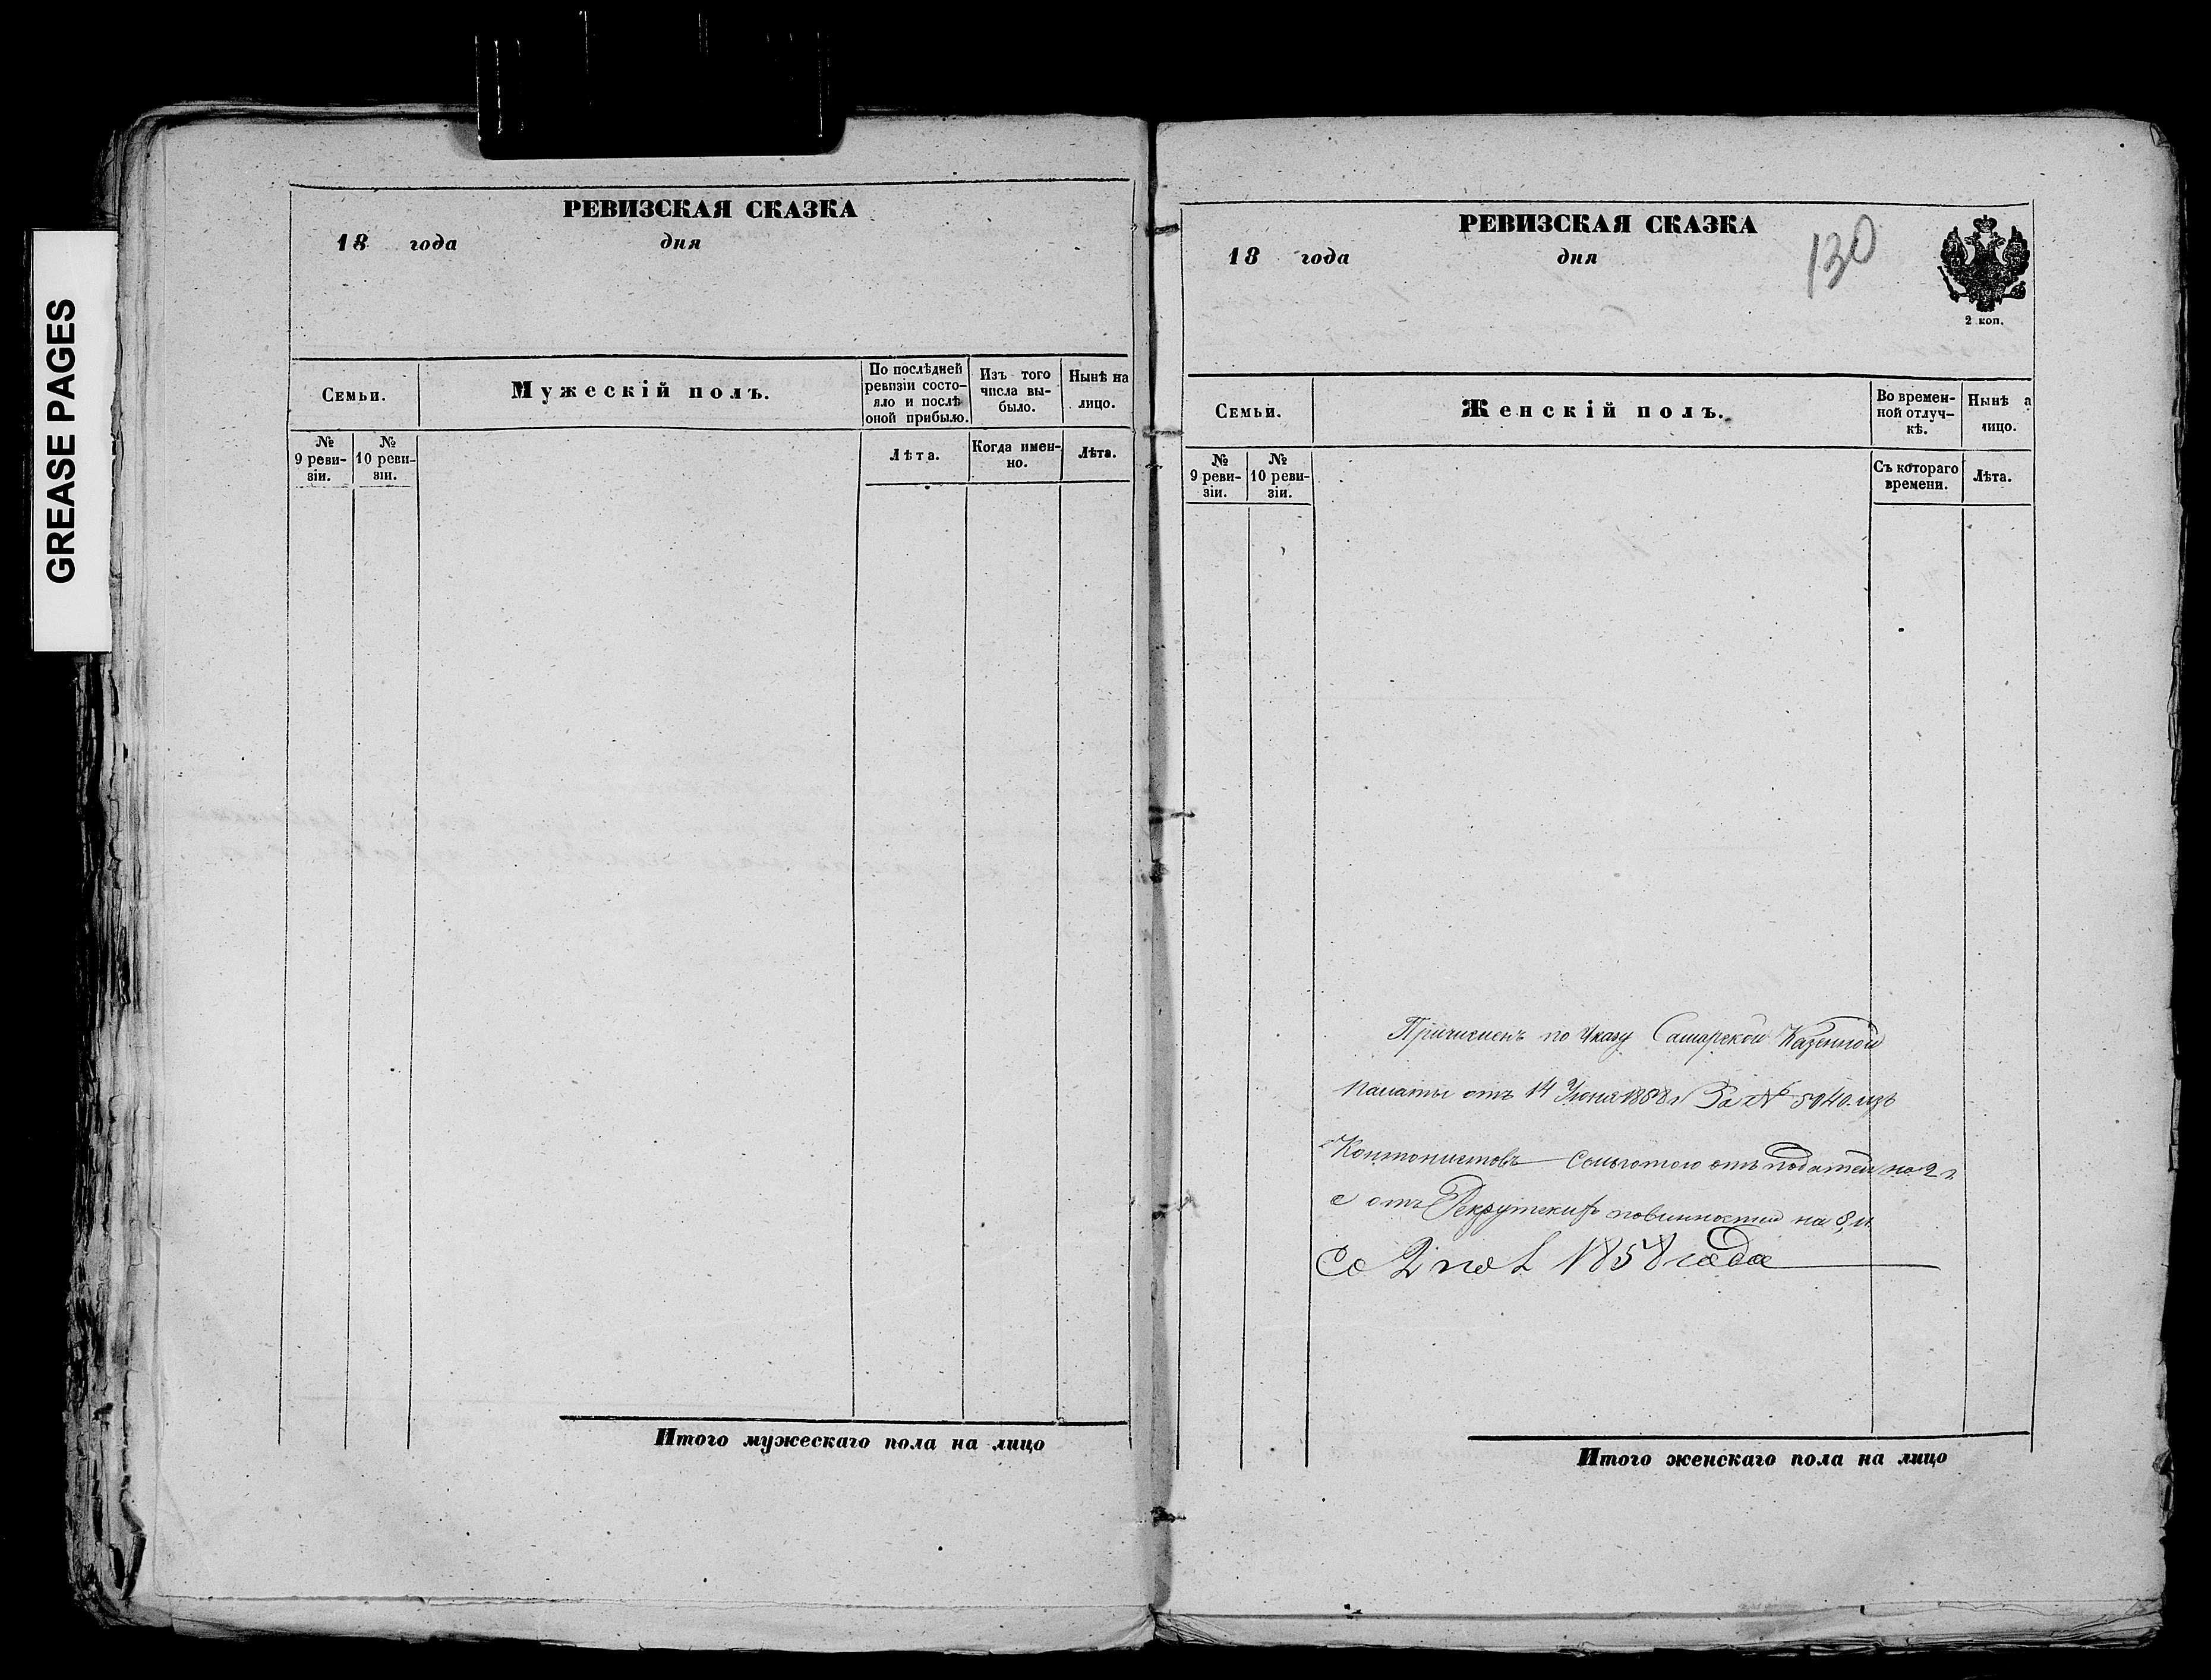 GREASE PAGES
РЕВИЗСКАЯ СКАЗКА
18 года дня
Семьи.
Мужескій полъ.
По послѣдней
ревизіи состо-
яло и послѣ
оной прибыло.
Изъ того
числа вы-
было.
Нынѣ на
лицо.
№
9 реви-
зіи.
№
10 реви-
зіи.
Лѣта.
Когда имен-
но.
Лѣта.
Итого мужескаго пола на лицо
РЕВИЗСКАЯ СКАЗКА
18 года дня
130
2 коп.
Семьи.
Женскій полъ.
Во времен-
ной отлуч-
кѣ.
Нынѣ а
лицо.
№
9 реви-
зіи.
№
10 реви-
зіи.
Съ котораго
времени.
Лѣта.
Причисленъ по Указу Самарской Казенной
палаты отъ 14 Июня 1858 г За № 5040. изъ
Контонистовъ Сольготою отъ податей на 2 г
е отъ Рекрутскихъ повинностей на
Со 2 по 1858 года
Итого женскаго пола на лицо